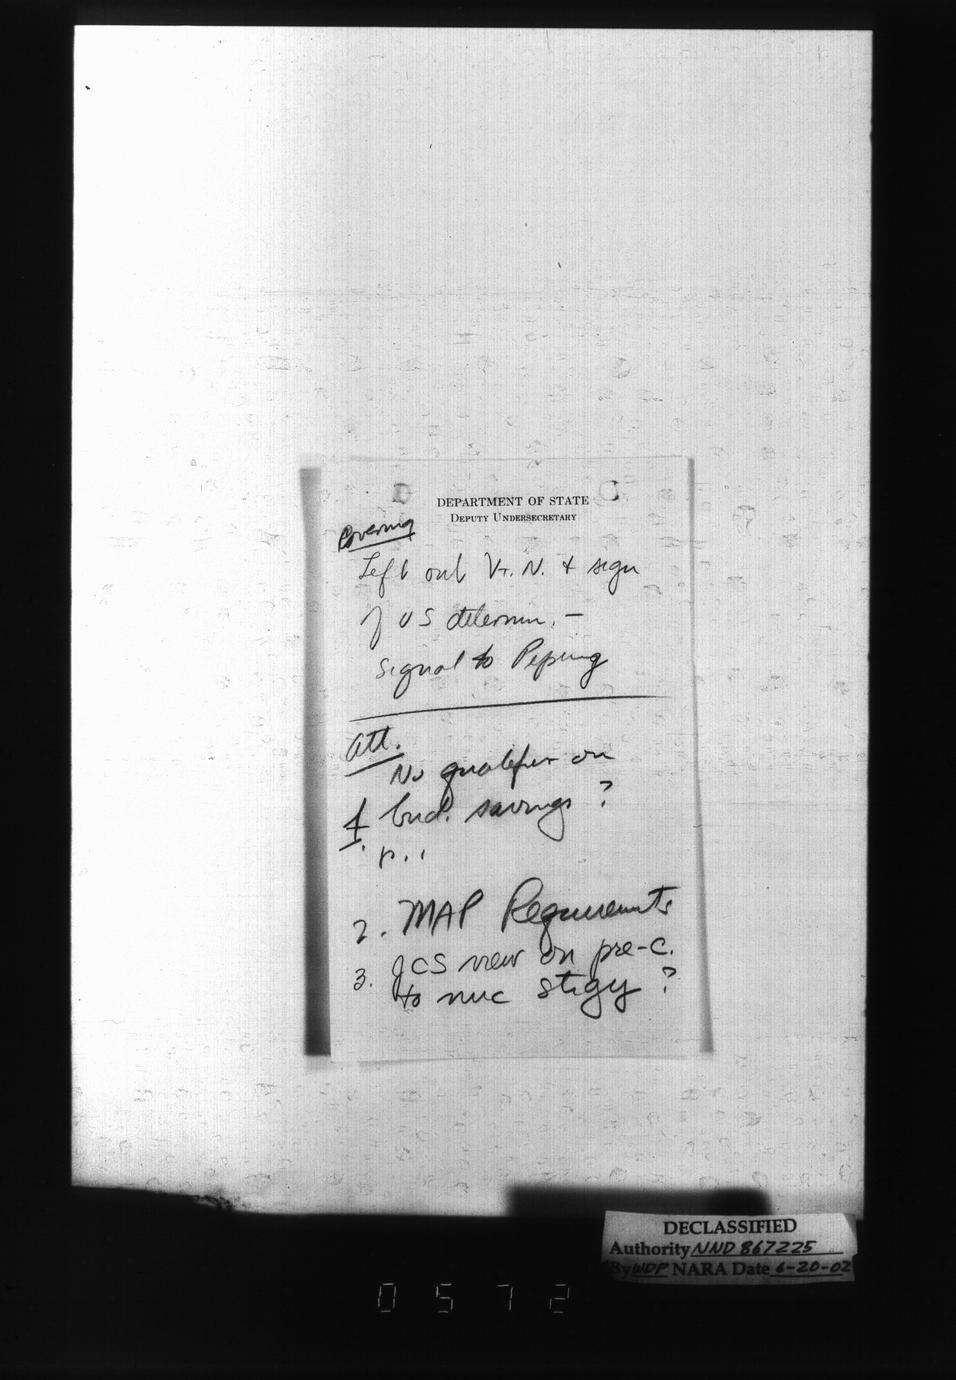 DEPARTMENT OF STATE
DEPUTY UNDERSECRETARY
Covering
Left out Vt. N. & sign
of US determin. –
signal to Peping
Att.
No qualifier on
bud. savings ?
2. MAP Requirements
3. JCS view on pre-c.
to nuc stgy ?
DECLASSIFIED
Authority NND 867225
By WDP NARA Date 6-20-02
0572